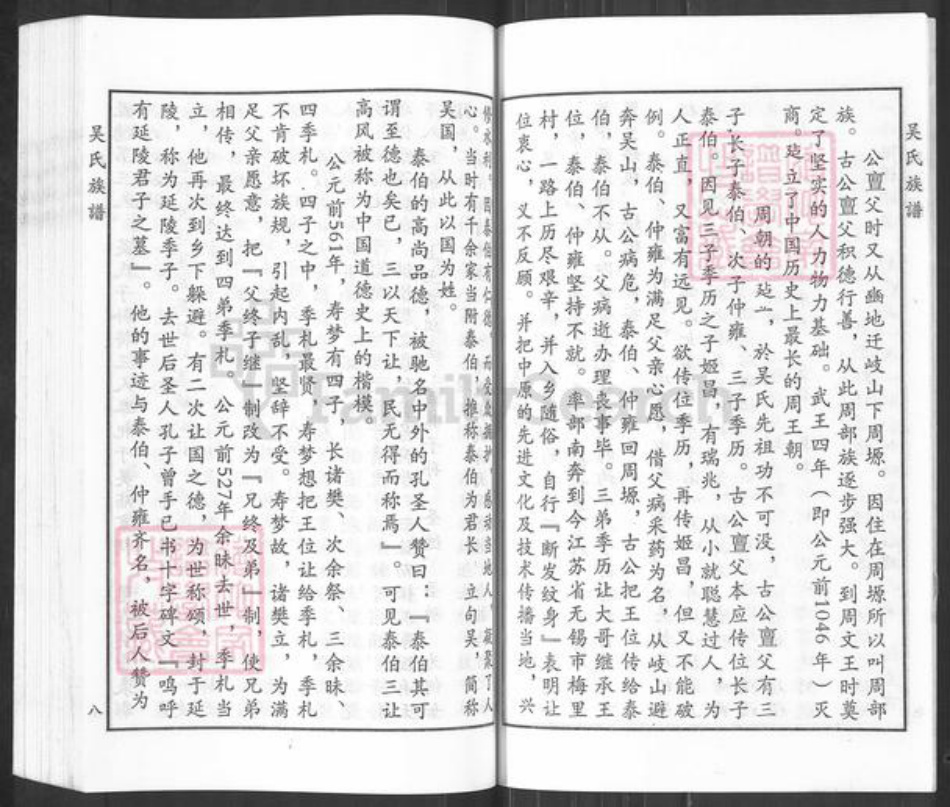 吴氏族譜
公亶父时又从豳地迁岐山下周塬。因住在周塬所以叫周部
族。古公亶父积德行善，从此周部族逐步强大。到周文王时奠
定了坚实的人力物力基础。武王四年（即公元前1046年）灭
商。建立了中国历史上最长的周王朝。
周朝的建立，於吴氏先祖功不可没，古公亶父有三
子，长子泰伯、次子仲雍、三子季历。古公亶父本应传位长子
泰伯。因见三子季历之子姬昌，有瑞兆，从小就聪慧过人，为
人正直，又富有远见。欲传位季历，再传姬昌，但又不能破
例。泰伯、仲雍为满足父亲心愿，借父病采药为名，从岐山避
奔吴山，古公病危，泰伯、仲雍回周塬，古公把王位传给泰
伯，泰伯不从。父病逝办理丧事毕。三弟季历让大哥继承王
位，泰伯、仲雍坚持不就。率部南奔到今江苏省无锡市梅里
村，一路上历尽艰辛，并入乡随俗，自行『断发纹身』表明让
位衷心，义不反顾。并把中原的先进文化及技术传播当地，兴
心。当时有千余家当附泰伯，推称泰伯为君长，立句吴，简称
吴国，从此以国为姓。
泰伯的高尚品德，被驰名中外的孔圣人赞曰：『泰伯其可
谓至德也矣已，三以天下让，民无得而称焉』。可见泰伯三让
高风被称为中国道德史上的楷模。
公元前561年，寿梦有四子，长诸樊、次余祭、三余昧、
四季札。四子之中，季札最贤，寿梦想把王位让给季札，季札
不肯破坏族规，引起内乱，坚辞不受。寿梦故，诸樊立，为满
足父亲愿意，把『父终子继』制改为『兄终及弟』制，使兄弟
相传，最终达到四弟季札。公元前527年余昧去世，季札当
立，他再次到乡下躲避。有二次让国之德，为世称颂，封于延
陵，称为延陵季子。去世后圣人孔子曾手已书十字碑文『呜呼
有延陵君子之墓』。他的事迹与泰伯、仲雍齐名，被后人赞为
吴氏族譜
八
FamilySearch